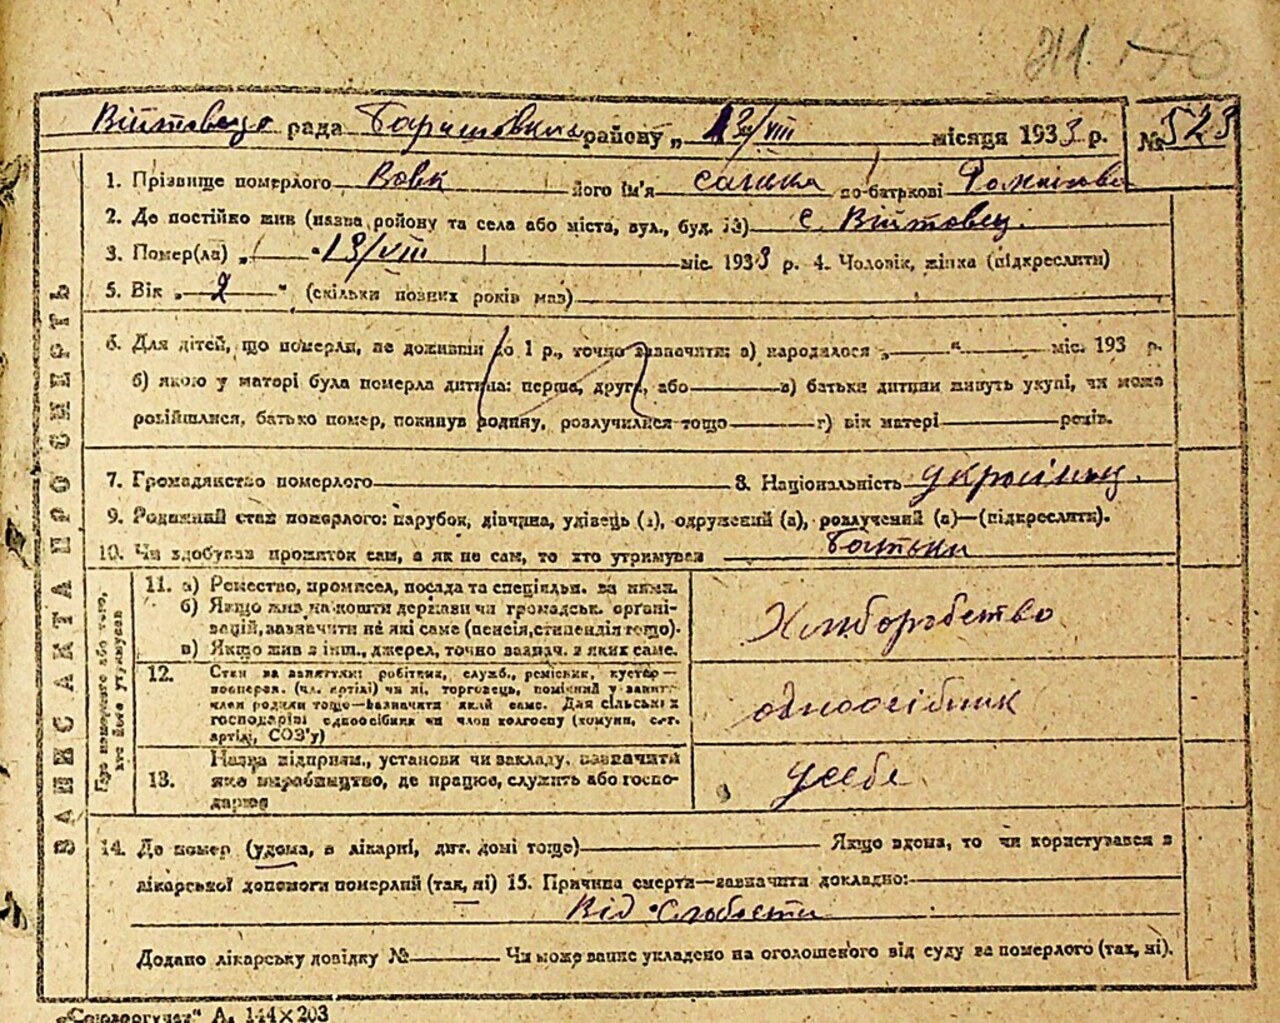 Війтовець рада Баришовськ району „ 13/VIII місяця 1933 р. № 523
1. Прізвище померлого Вовк його ім'я по-батькові
2. Де постійно жив (назва району та села або міста, вул., буд. №) с. Війтовец.
3. Помер(ла) „ " 13/VIII міс. 1933 р. 4. Чоловік, жінка (підкреслити)
5. Вік „ 2 " (скільки повних років мав)
6. Для дітей, що померли, не доживши до 1 р., точно зазначити: а) народилося „ " міс. 193 р.
б) якою у матері була померла дитина: перша, друга, або в) батьки дитини живуть укупі, чи може
розійшлися, батько помер, покинув родину, розлучилися тощо г) вік матері років.
7. Громадянство померлого 8. Національність Українец.
9. Родинний стан померлого: парубок, дівчина, удівець (а), одружений (а), розлучений (а)—(підкреслити).
10. Чи здобував прожиток сам, а як не сам, то хто утримував Батьки
ЗАПИС АКТА ПРО СМЕРТЬ
Про померлого або того, хто його утримував
11. а) Ремество, промисел, посада та спеціяльн. за ними.
б) Якщо жив на кошти держави чи громадськ. органі-
зацій, зазначити на які саме (пенсія, стипендія тощо).
в) Якщо жив з інш., джерел, точно зазнач. з яких саме.
Хліборобство
12. Стан за заняттям: робітник, служб., ремісник, кустар—
кооперов. (чл. артілі) чи ні, торговець, помічний у занят.
член родини тощо—зазначити який саме. Для сільських
господарів: одноосібник чи член колгоспу (комуни, с.-г.
артілі, СОЗ'у)
одноосібник
13. Назва підприєм., установи чи закладу, зазначити
яке виробництво, де працює, служить або госпо-
дарює
у себе
14. Де помер (удома, в лікарні, дит. домі тощо) Якщо вдома, то чи користувався в
лікарської допомоги померлий (так, ні) 15. Причина смерти—зазначити докладно:
Від слабости
Додано лікарську довідку № Чи може запис укладено на оголошеного від суду за померлого (так, ні).
А. 144×203